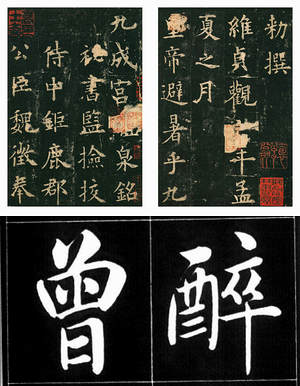 九成宮泉銘
祕書監撿挍
侍中鉅鹿郡
公臣魏徵奉
勅撰
維貞觀年孟
夏之月
帝避暑乎九
曾醉